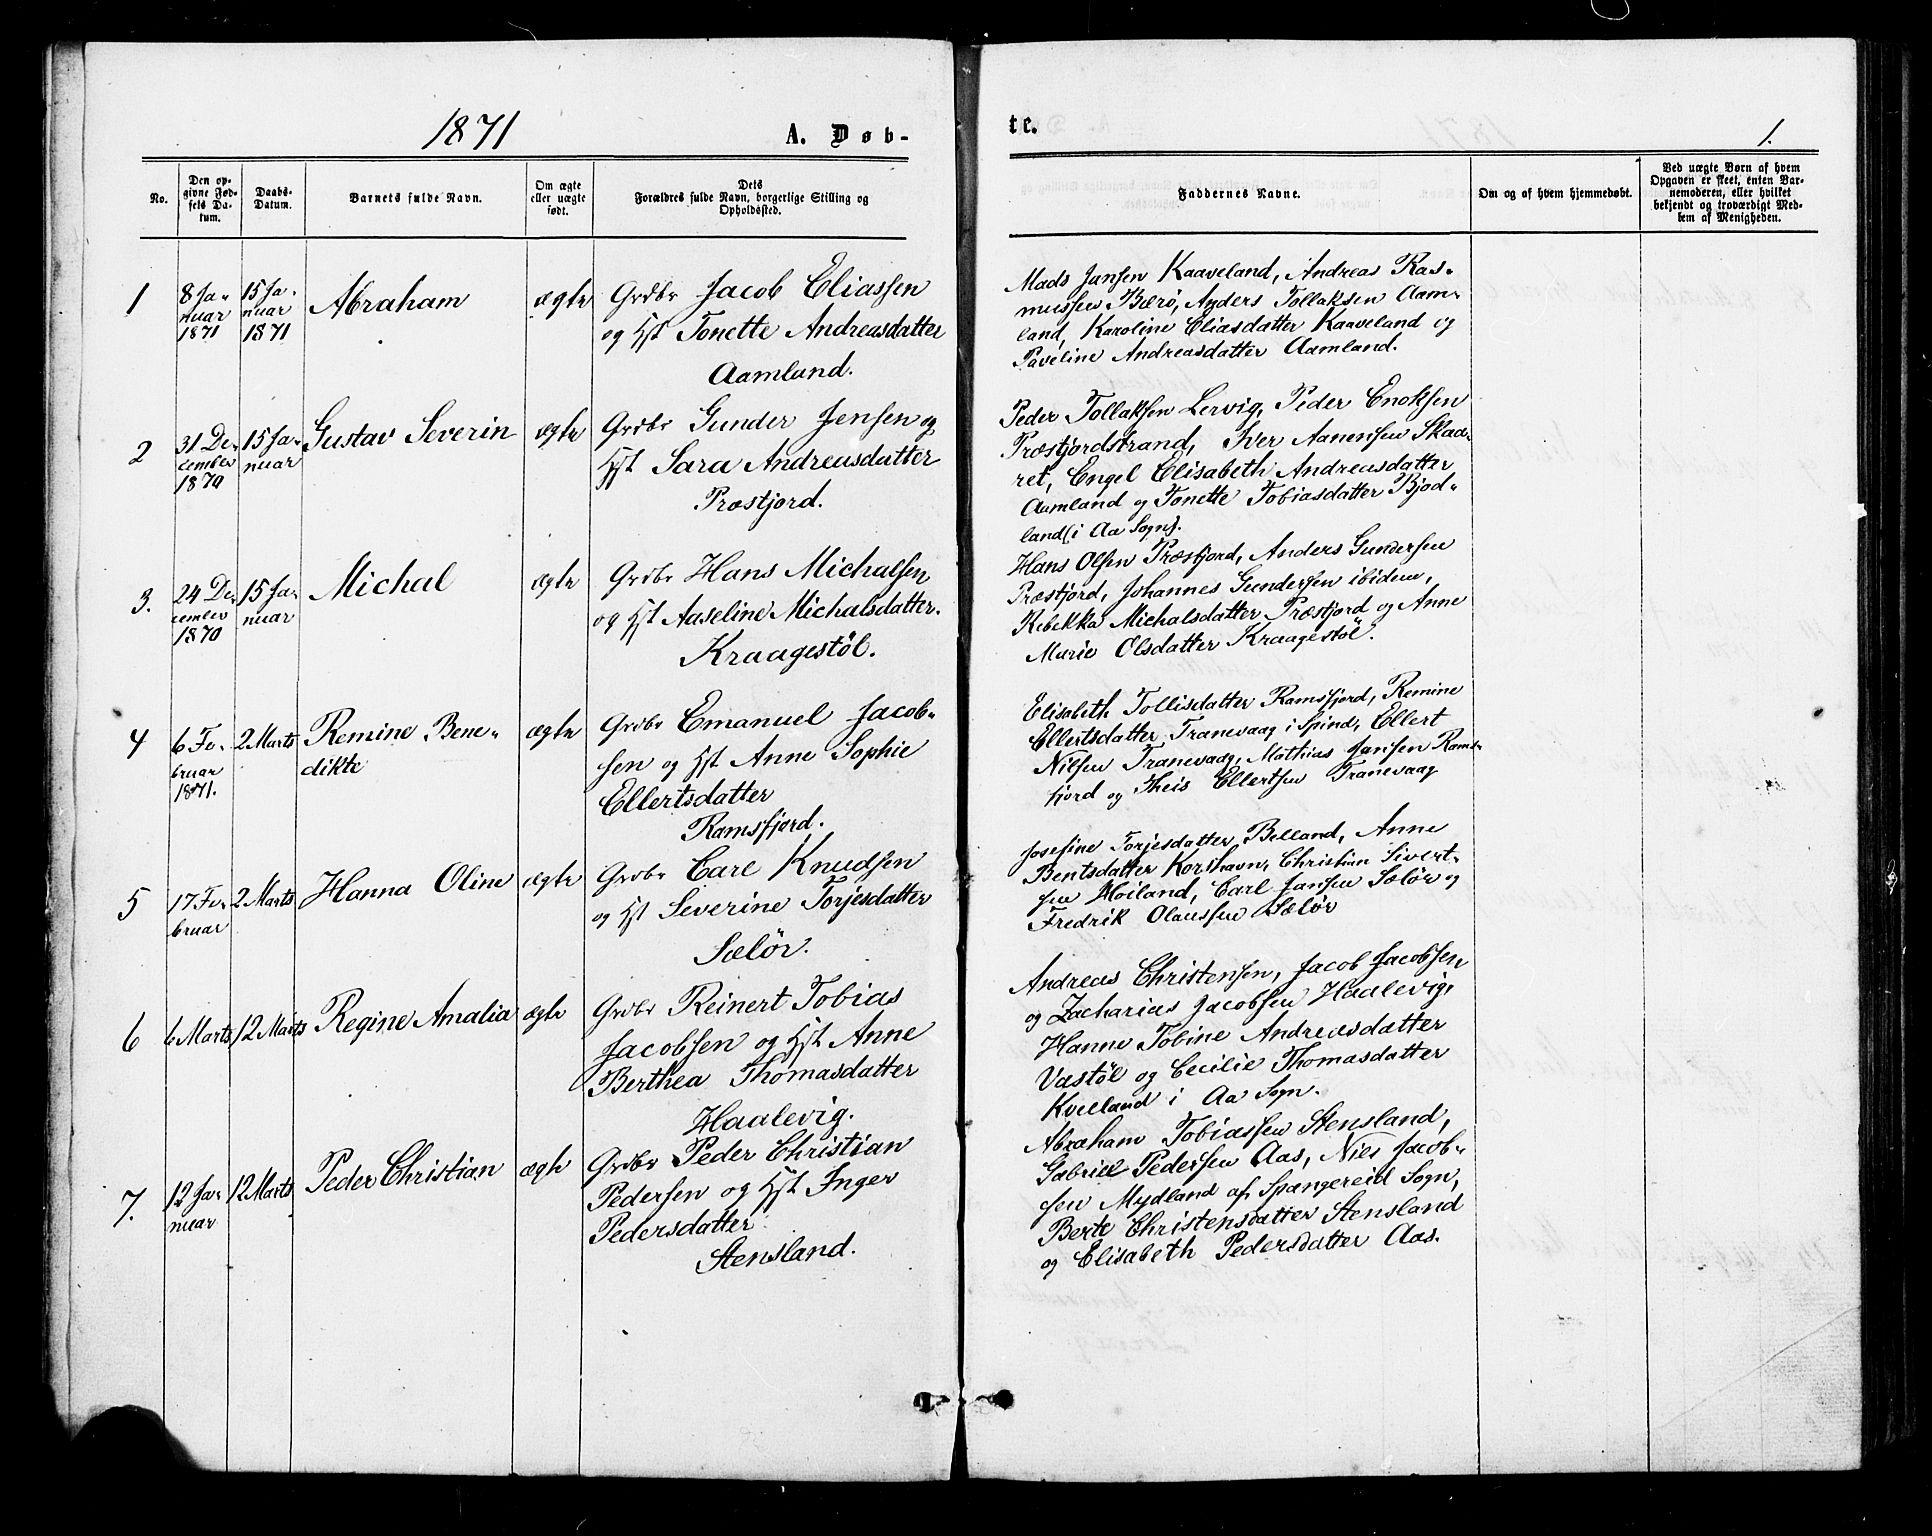 1871
A. Døb-
te.
1.
No.
Den op-
givne Fød-
sels Da-
tum.
Daabs-
Datum.
Barnets fulde Navn.
Om ægte
eller uægte
født.
Dets
Forældres fulde Navn, borgerlige Stilling og
Opholdssted.
Faddernes Navne.
Om og af hvem hjemmedøbt.
Ved uægte Børn af hvem
Opgaven er skeet, enten Bar-
nemoderen, eller hvilket
bekjendt og troværdigt Med-
lem af Menigheden.
1
8 Ja-
nuar
1871
15 Ja-
nuar
1871
Abraham
ægte
Grdbr Jacob Eliassen
og Hst Tonette Andreasdatter
Aamland.
Mads Jansen Kaaveland, Andreas Ras-
mussen Bærø, Anders Tollaksen Aam-
land, Karoline Eliasdatter Kaaveland og
Paveline Andreasdatter Aamland.
2
31 De-
cember
1870
15 Ja-
nuar
Gustav Severin
ægte
Grdbr Gunder Jensen og
Hst Sara Andreasdatter
Præstjord.
Peder Tollaksen Lervig, Peder Enoksen
Præstjordstrand, Iver Aanensen Skaa-
ret, Engel Elisabeth Andreasdatter
Aamland og Tonette Tobiasdatter Bjod-
land (i Aa Sogn).
3.
24 De-
cember
1870
15 Ja-
nuar
Michal
ægte
Grdbr Hans Michalsen
og Hst Aaseline Michalsdatter.
Kraagestöl.
Hans Olsen Præstjord, Anders Gundersen
Præstjord, Johannes Gundersen ibidem,
Rebekka Michalsdatter Præstjord og Anne
Marie Olsdatter Kraagestöl.
4
6 Fe-
bruar
1871.
2 Marts
Remine Bene-
dikte
ægte
Grdbr Emanuel Jacob-
sen og Hst Anne Sophie
Ellertsdatter
Ramsfjord.
Elisabeth Tollisdatter Ramsfjord, Remine
Ellertsdatter Tranevaag i Spind, Ellert
Nilsen Tranevaag, Mathias Jansen Rams-
fjord og Theis Ellertsen Tranevaag
5
17 Fe-
bruar
2 Marts
Hanna Oline
ægte
Grdbr Carl Knudsen
og Hst Severine Torjesdatter
Sælør.
Josefine Torjesdatter Belland, Anne
Bentsdatter Korshavn, Christian Sivert-
sen Høiland, Carl Jansen Sælør og
Fredrik Olaussen Sælør
6
6 Marts
12 Marts
Regine Amalia
ægte
Grdbr Reinert Tobias
Jacobsen og Hst Anne
Berthea Thomasdatter
Haalevig.
Andreas Christensen, Jacob Jacobsen
og Zacharias Jacobsen Haalevig,
Hanne Tobine Andreasdatter
Vastöl og Cecilie Thomasdatter
Kvelland i Aa Sogn.
7.
12 Ja-
nuar
12 Marts
Peder Christian
ægte
Grdbr Peder Christian
Pedersen og Hst Inger
Pedersdatter
Stensland.
Abraham Tobiassen Stensland,
Gabriel Pedersen Aas, Nils Jacob-
sen Mydland af Spangereid Sogn,
Berte Christensdatter Stensland
og Elisabeth Pedersdatter Aas.